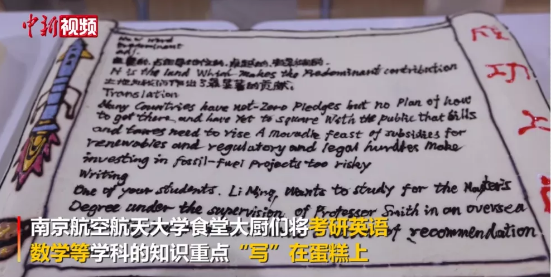 中新视频
New Word
Predominant
adj.
It is the land which makes the Predominant contribution
Translation
Many Countries have not-Zero Pledges but no Plan of how
to get there, and have yet to square with the public that bills
and taxes need to rise A movable feast of subsidies for
renewables and regulatory and legal hurdles make
investing in fossil-fuel Projects too risky
Writing
One of your students. Li Ming, Wants to study for the Master's
Degree under the supervision of Professor Smith in an oversea
of recommendation
成
功
上
南京航空航天大学食堂大厨们将考研英语
数学等学科的知识重点“写”在蛋糕上